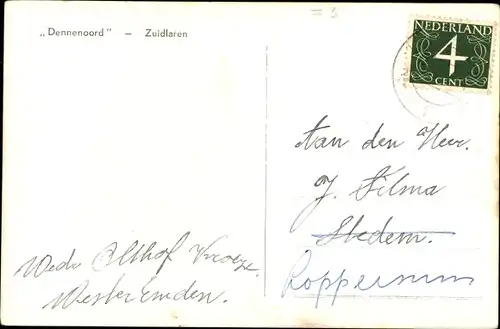 „Dennenoord" – Zuidlaren
= 3
NEDERLAND
4
CENT
Aan den Heer.
J. Filma
Stedem.
Loppersum
Wede Olthof Vroege.
Westeremden.